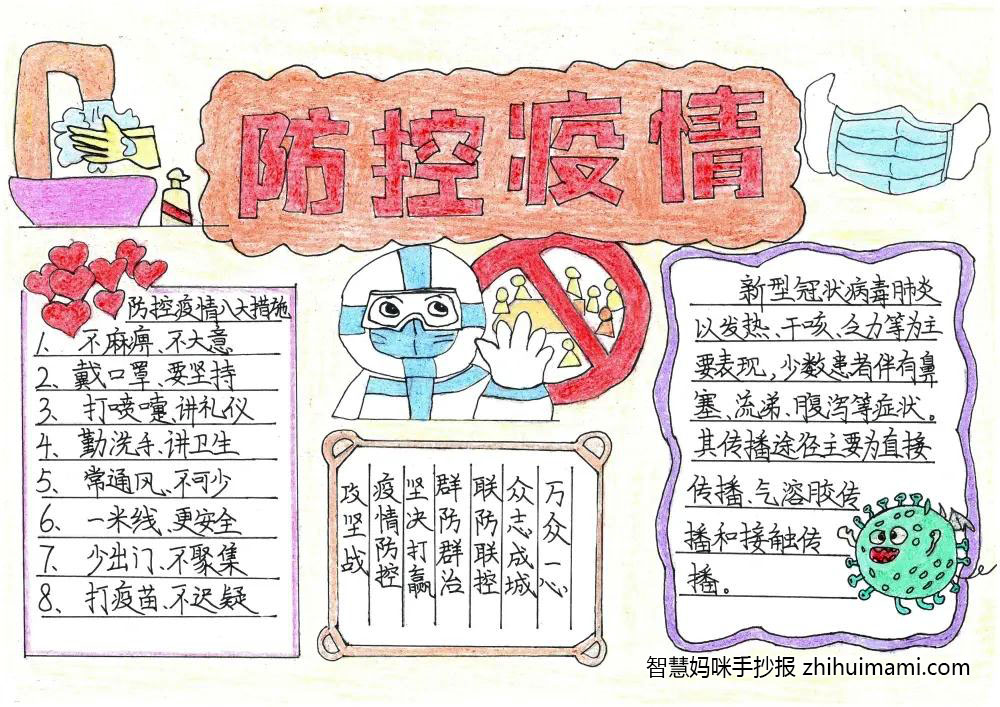 防控疫情
防控疫情八大措施
1、不麻痹、不大意
2、戴口罩、要坚持
3、打喷嚏、讲礼仪
4、勤洗手、讲卫生
5、常通风、不可少
6、一米线、更安全
7、少出门、不聚集
8、打疫苗、不迟疑
万众一心
众志成城
联防联控
群防群治
坚决打赢
疫情防控
攻坚战
新型冠状病毒肺炎
以发热、干咳、乏力等为主
要表现,少数患者伴有鼻
塞、流涕、腹泻等症状。
其传播途径主要为直接
传播、气溶胶传
播和接触传
播。
智慧妈咪手抄报 zhihuimami.com